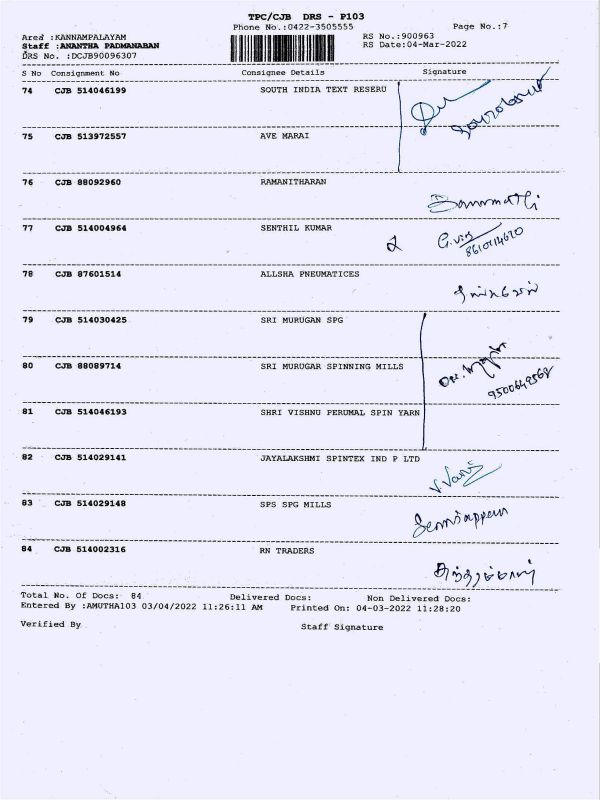 TPC/CJB DRS - P103
Phone No.:0422-3505555
Page No.:7
Area :KANNAMPALAYAM
RS No.:900963
Staff :ANANTHA PADMANABAN
RS Date:04-Mar-2022
DRS No. :DCJB90096307
S No Consignment No Consignee Details Signature
74 CJB 514046199 SOUTH INDIA TEXT RESERU
75 CJB 513972557 AVE MARAI
76 CJB 88092960 RAMANITHARAN
77 CJB 514004964 SENTHIL KUMAR
78 CJB 87601514 ALLSHA PNEUMATICES
79 CJB 514030425 SRI MURUGAN SPG
80 CJB 88089714 SRI MURUGAR SPINNING MILLS
81 CJB 514046193 SHRI VISHNU PERUMAL SPIN YARN
82 CJB 514029141 JAYALAKSHMI SPINTEX IND P LTD
V.Vani
83 CJB 514029148 SPS SPG MILLS
84 CJB 514002316 RN TRADERS
Total No. Of Docs: 84 Delivered Docs: Non Delivered Docs:
Entered By :AMUTHA103 03/04/2022 11:26:11 AM Printed On: 04-03-2022 11:28:20
Verified By Staff Signature